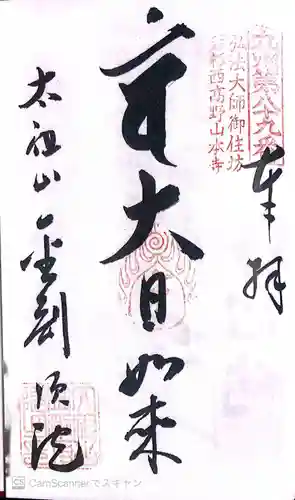 九州第八十九番
弘法大師御住坊
西高野山本寺
奉拝
大日如来
太祖山金剛頂院
CamScannerでスキャン